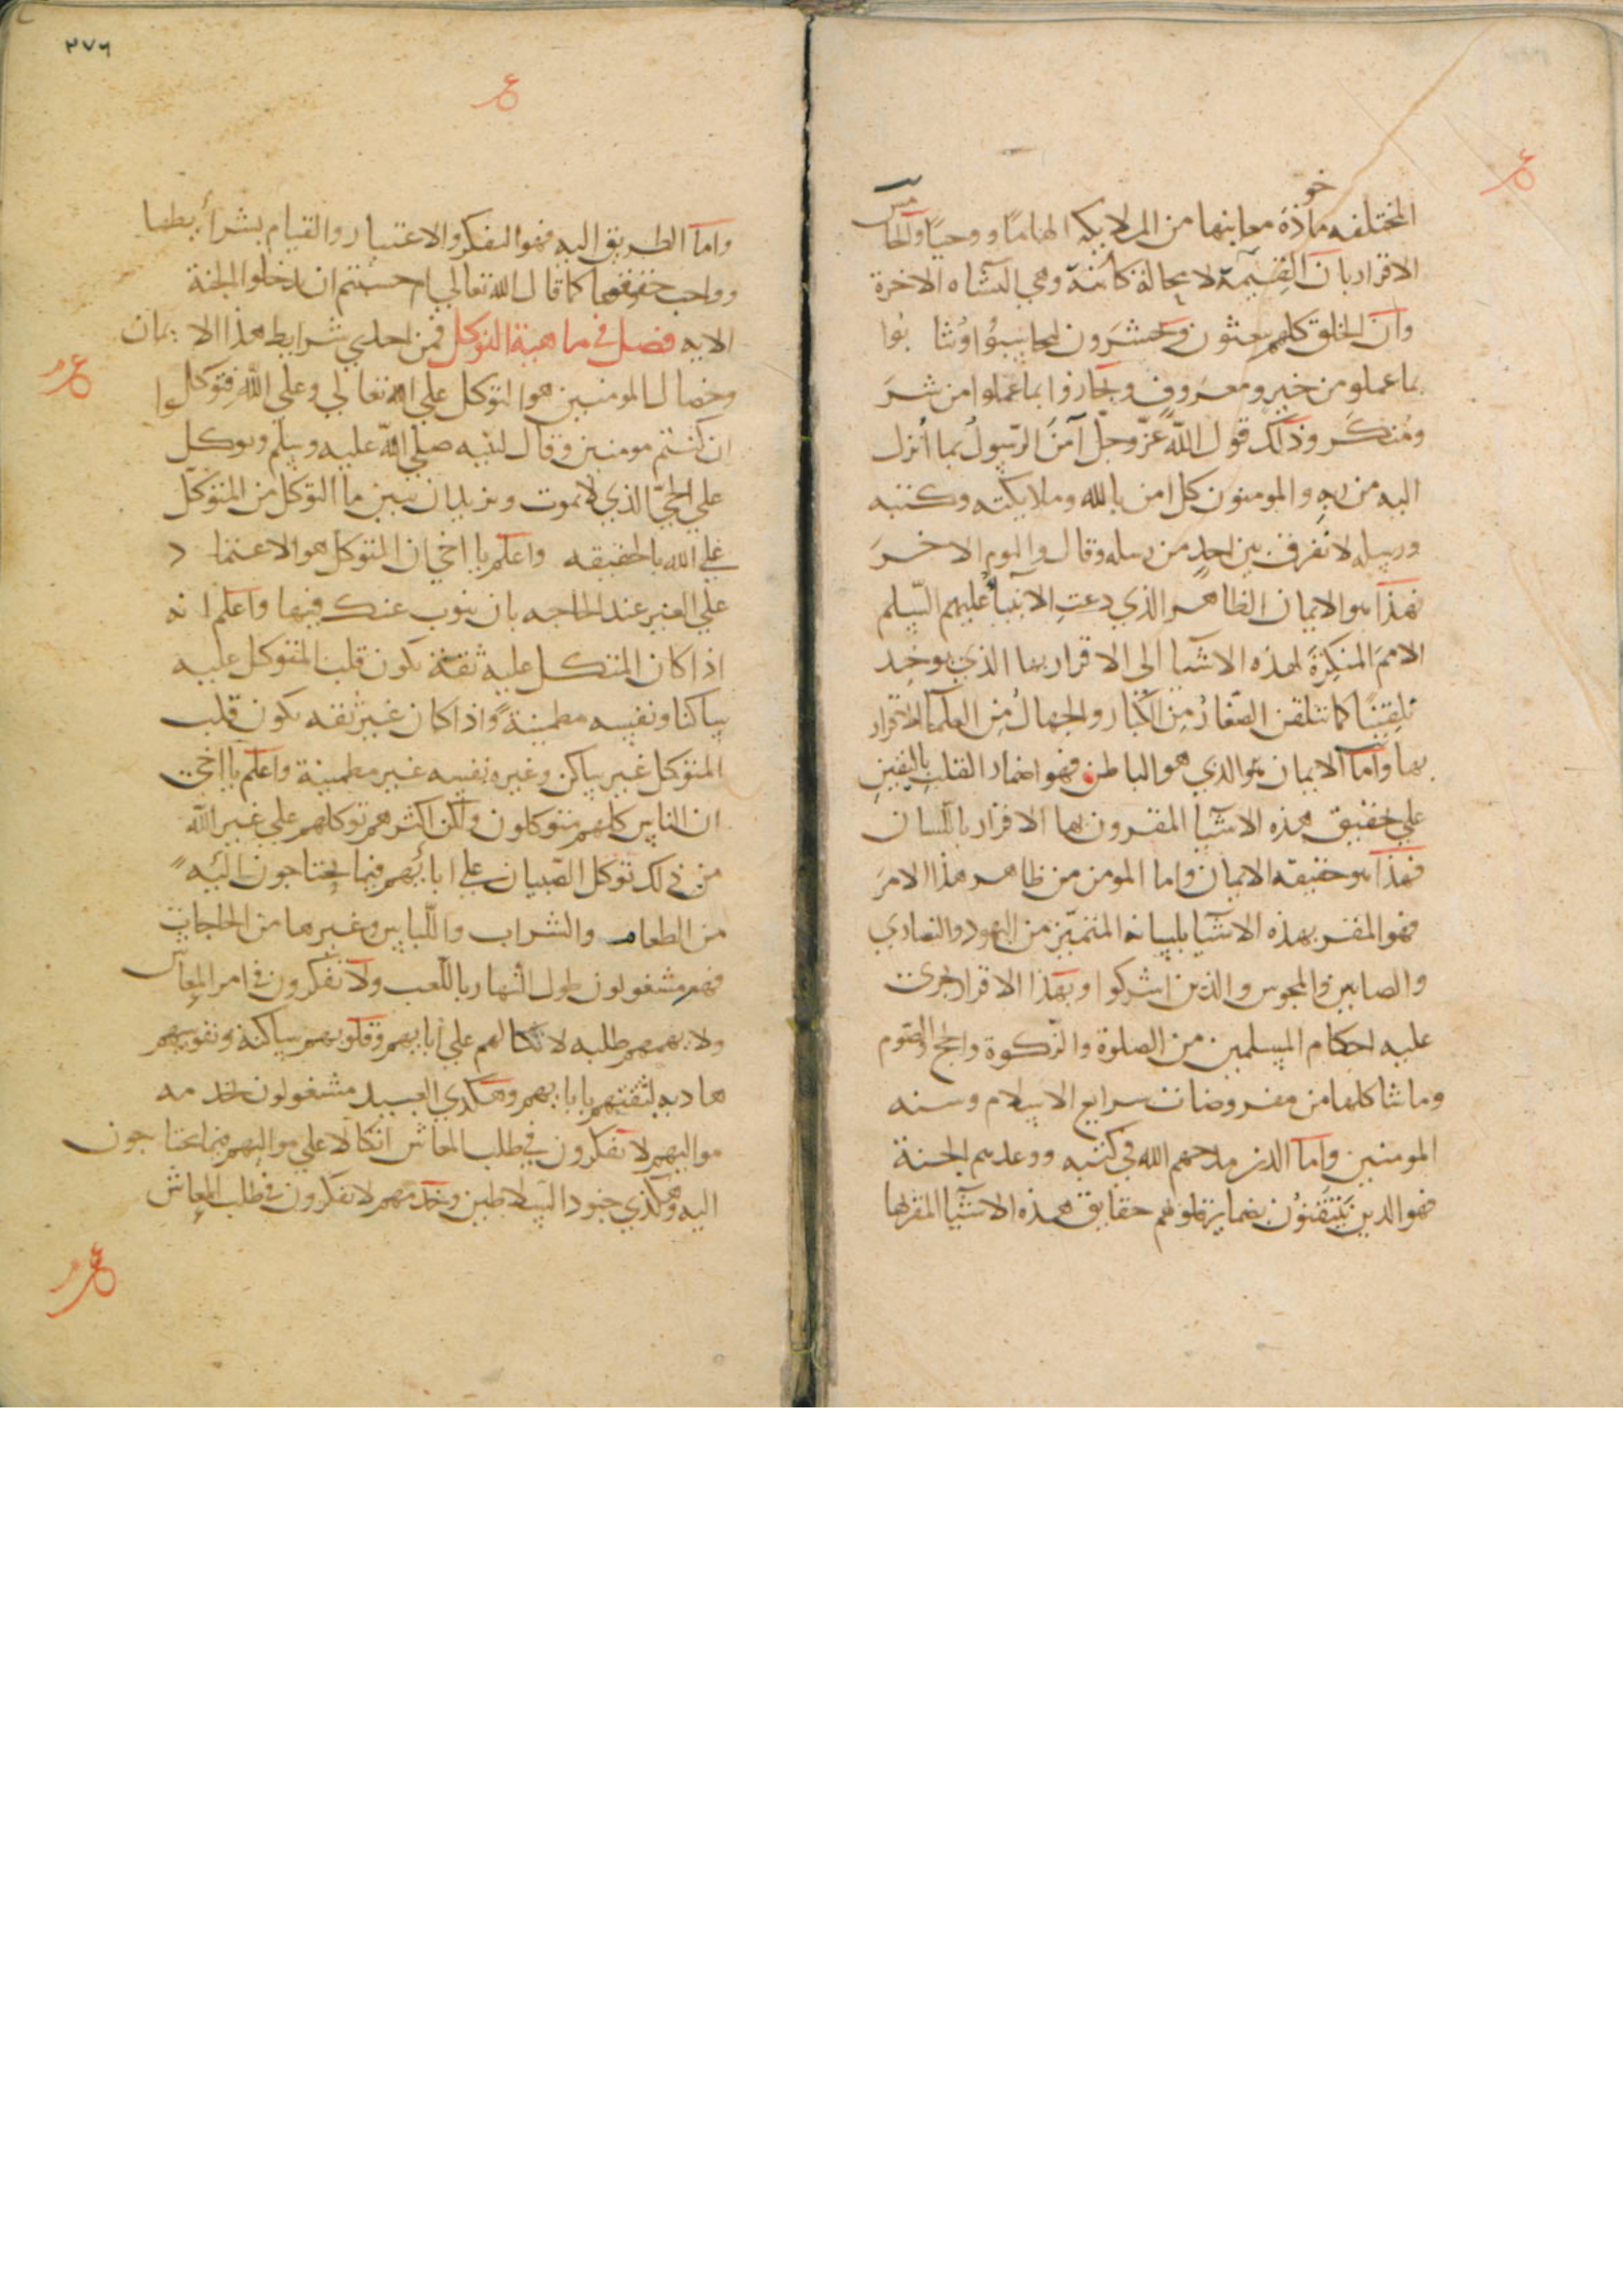 المختلفه ماخوذة معاينها من الملايكه الهامًا ووحيًا والخامس
الاقرار بان القيمة لا محالة كائنة وهي النشاه الاخرة
وان الخلق كلهم يبعثون ويحشرون ليحاسبوا ويثابوا
بما عملو من خير ومعروف ويجازوا بما عملوا من شر
ومنكر وذلك قول الله عز وجل آمن الرسول بما أنزل
اليه من ربه والمومنون كل امن بالله وملايكته وكتبه
ورسله لا نفرق بين احد من رسله وقال واليوم الاخر
فهذا هو الايمان الظاهر الذي دعت الانبيا عليهم السلم
الامم المنكرة لهذه الاشيا الى الاقرار بها الذي يوخد
تلقينًا كما تتلقن الصغار من الكبار والجهال من العلما الاقرار
بها واما الايمان هو الذي هو الباطن فهو اضمار القلب باليقين
علي تحقيق هذه الاشيا المقرون بها الاقرار باللسان
فهذا هو حقيقه الايمان واما المومن من ظاهر هذا الامر
فهو المقر بهذه الاشيا بلسانه المتميز من اليهود والنصاري
والصابين والمجوس والذين اشركوا وبهذا الاقرار تجرى
عليه احكام المسلمين من الصلوة والزكوة والحج والصوم
وما شاكلها من مفروضات سرايع الاسلام وسنه
المومنين واما الذين مدحهم الله في كتبه ووعدهم الجنة
فهو الذين يتيقنون بضماير قلوبهم حقايق هذه الاشيا المقر بها
٢٧٦
واما الطريق اليه فهو التفكر والاعتبار والقيام بشرأيطها
وواجب حقوقها كما قال الله تعالي ام حسبتم ان تدخلوا الجنة
الايه فصل في ماهية التوكل فمن احدي شرايط هذا الايمان
وخصال المومنين هو التوكل علي الله تعالي وعلي الله فتوكلوا
ان كنتم مومنين وقال لنبيه صلي الله عليه وسلم وتوكل
علي الحي الذي لا يموت ونريد ان نبين ما التوكل من المتوكل
علي الله بالحقيقه واعلم يا اخي ان التوكل هو الاعتماد
علي الغير عند الحاجه بان ينوب عنك فيها واعلم انه
اذا كان المتكل عليه ثقة يكون قلب المتوكل عليه
ساكنا ونفسه مطمينة واذا كان غير ثقه يكون قلب
المتوكل غير ساكن وغيره نفسه غير مطمينة واعلم يا اخي
ان الناس كلهم متوكلون ولكن اكثرهم توكلهم علي غير الله
من ذلك توكل الصبيان علي ابائهم فيما يحتاجون اليه
من الطعام والشراب واللباس وغيرها من الحاجات
فهم مشغولون طول النهار باللعب ولا يفكرون في امر المعاش
ولا يهمهم طلبه لاتكالهم علي ابايهم وقلوبهم ساكنة ونفوسهم
هاديه لثقتهم بابايهم وهكذي العبيد مشغولون بخدمه
مواليهم لا يفكرون في طلب المعاش اتكالا علي مواليهم فيما يحتاجون
اليه وهكذي جنود السلاطين وخدمهم لا يفكرون في طلب المعاش